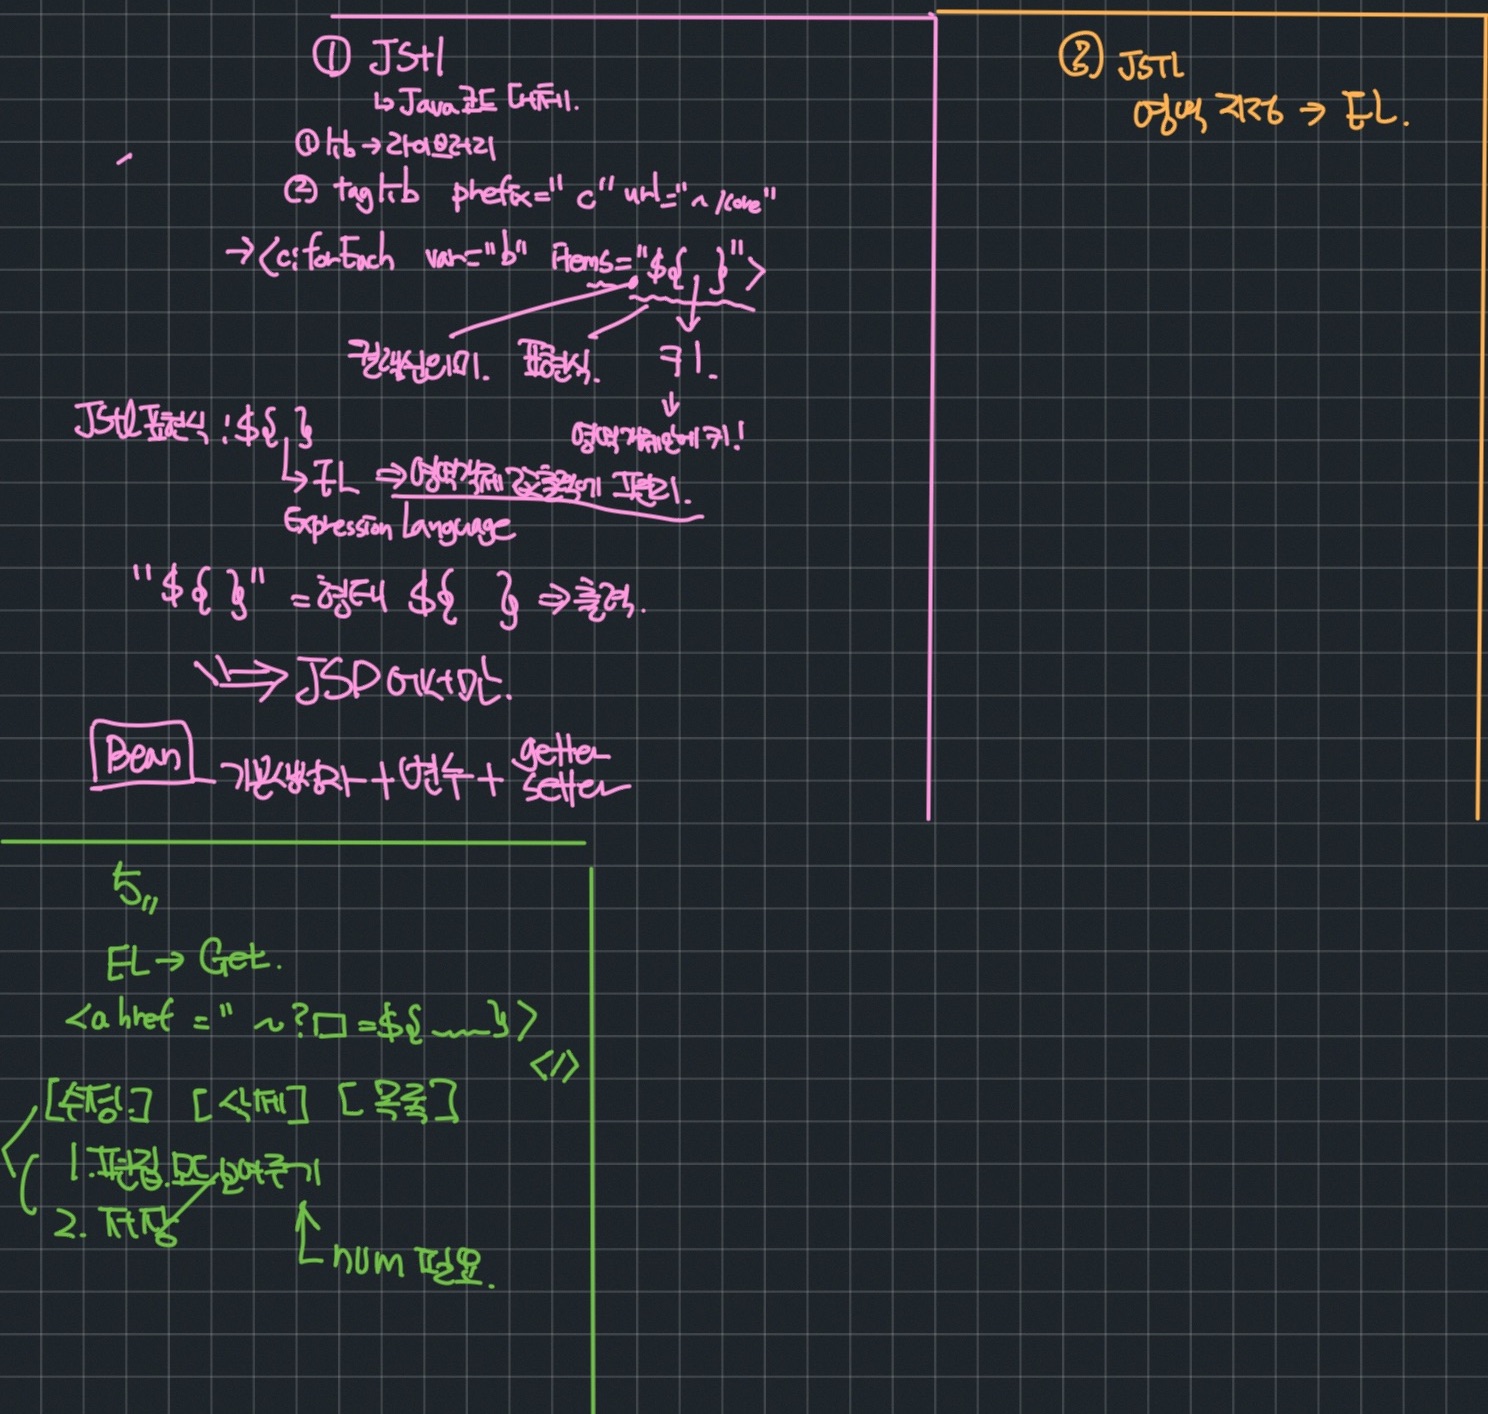 ① JStl
↳ Java코드 대체.
① lib → 라이브러리
② taglib prefix="c" url="~/core"
→ <c:forEach var="b" items="${ }">
컬렉션의미. 표현식. 키.
↓
영역객체안에 키!
JStl표현식 : ${ }
↳ EL ⇒ 영역객체 값출력이 편리.
Expression Language
"${ }" = 형태 ${ } ⇒ 출력.
⇒ JSP에서만.
Bean 기본생성자 + 변수 + getter
setter
② JSTL
영역 지정 → EL.
5,,
EL → Get.
<a href = " ~?□=${ }>
</>
[수정.] [삭제] [목록]
1. 편집.모드 보여주기
2. 저장
num 필요.